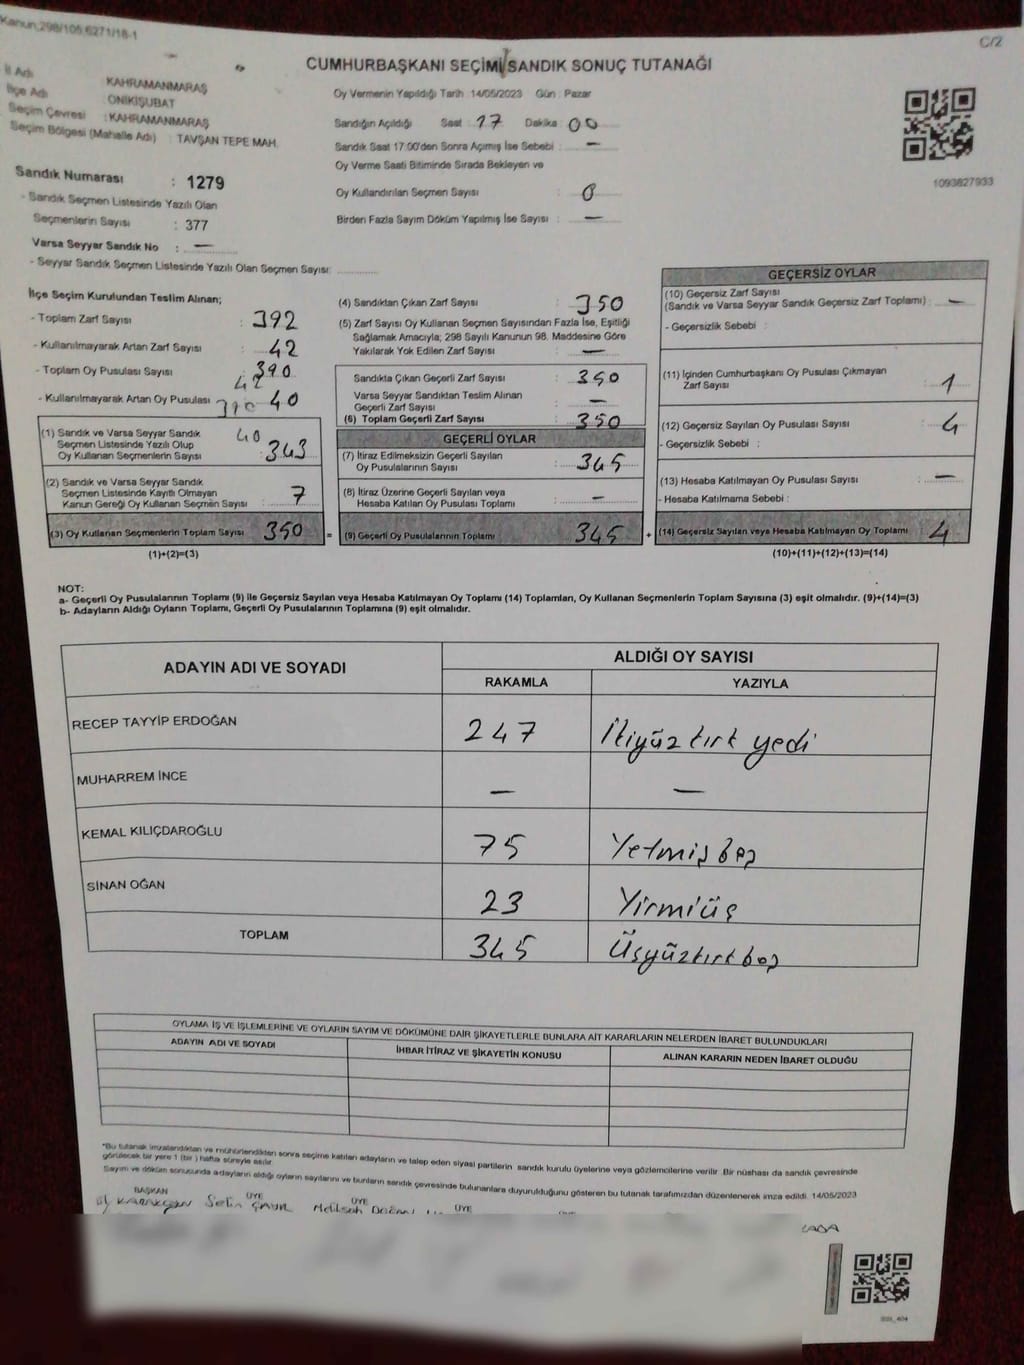 Kanun;298/105,6271/18-1
C/2
CUMHURBAŞKANI SEÇİMİ SANDIK SONUÇ TUTANAĞI
İl Adı KAHRAMANMARAŞ
İlçe Adı ONİKİŞUBAT
Seçim Çevresi : KAHRAMANMARAŞ
Seçim Bölgesi (Mahalle Adı) : TAVŞAN TEPE MAH.
Oy Vermenin Yapıldığı Tarih :14/05/2023 Gün : Pazar
Sandığın Açıldığı Saat : 17 Dakika : 00
Sandık Saat 17:00'den Sonra Açımış İse Sebebi : —
Oy Verme Saati Bitiminde Sırada Bekleyen ve
Oy Kullandırılan Seçmen Sayısı : 0
Birden Fazla Sayım Döküm Yapılmış İse Sayısı : —
1093827933
Sandık Numarası : 1279
- Sandık Seçmen Listesinde Yazılı Olan
Seçmenlerin Sayısı : 377
Varsa Seyyar Sandık No : —
- Seyyar Sandık Seçmen Listesinde Yazılı Olan Seçmen Sayısı:
İlçe Seçim Kurulundan Teslim Alınan;
- Toplam Zarf Sayısı : 392
- Kullanılmayarak Artan Zarf Sayısı : 42
- Toplam Oy Pusulası Sayısı : 390
42
- Kullanılmayarak Artan Oy Pusulası 390 40
40
(1) Sandık ve Varsa Seyyar Sandık
Seçmen Listesinde Yazılı Olup
Oy Kullanan Seçmenlerin Sayısı : 343
(2) Sandık ve Varsa Seyyar Sandık
Seçmen Listesinde Kayıtlı Olmayan
Kanun Gereği Oy Kullanan Seçmen Sayısı : 7
(3) Oy Kullanan Seçmenlerin Toplam Sayısı 350 =
(1)+(2)=(3)
(4) Sandıktan Çıkan Zarf Sayısı : 350
(5) Zarf Sayısı Oy Kullanan Seçmen Sayısından Fazla İse, Eşitliği
Sağlamak Amacıyla; 298 Sayılı Kanunun 98. Maddesine Göre
Yakılarak Yok Edilen Zarf Sayısı : —
Sandıkta Çıkan Geçerli Zarf Sayısı : 350
Varsa Seyyar Sandıktan Teslim Alınan
Geçerli Zarf Sayısı : —
(6) Toplam Geçerli Zarf Sayısı : 350
GEÇERLİ OYLAR
(7) İtiraz Edilmeksizin Geçerli Sayılan
Oy Pusulalarının Sayısı : 345
(8) İtiraz Üzerine Geçerli Sayılan veya
Hesaba Katılan Oy Pusulası Toplamı : —
(9) Geçerli Oy Pusulalarının Toplamı 345 +
GEÇERSİZ OYLAR
(10) Geçersiz Zarf Sayısı
(Sandık ve Varsa Seyyar Sandık Geçersiz Zarf Toplamı) : —
- Geçersizlik Sebebi :
(11) İçinden Cumhurbaşkanı Oy Pusulası Çıkmayan
Zarf Sayısı : 1
(12) Geçersiz Sayılan Oy Pusulası Sayısı : 4
- Geçersizlik Sebebi :
(13) Hesaba Katılmayan Oy Pusulası Sayısı : —
- Hesaba Katılmama Sebebi :
(14) Geçersiz Sayılan veya Hesaba Katılmayan Oy Toplamı 4
(10)+(11)+(12)+(13)=(14)
NOT:
a- Geçerli Oy Pusulalarının Toplamı (9) ile Geçersiz Sayılan veya Hesaba Katılmayan Oy Toplamı (14) Toplamları, Oy Kullanan Seçmenlerin Toplam Sayısına (3) eşit olmalıdır. (9)+(14)=(3)
b- Adayların Aldığı Oyların Toplamı, Geçerli Oy Pusulalarının Toplamına (9) eşit olmalıdır.
ADAYIN ADI VE SOYADI ALDIĞI OY SAYISI
RAKAMLA YAZIYLA
RECEP TAYYİP ERDOĞAN 247 İkiyüzkırk yedi
MUHARREM İNCE — —
KEMAL KILIÇDAROĞLU 75 Yetmiş beş
SİNAN OĞAN 23 Yirmiüç
TOPLAM 345 Üçyüzkırkbeş
OYLAMA İŞ VE İŞLEMLERİNE VE OYLARIN SAYIM VE DÖKÜMÜNE DAİR ŞİKAYETLERLE BUNLARA AİT KARARLARIN NELERDEN İBARET BULUNDUKLARI
ADAYIN ADI VE SOYADI İHBAR İTİRAZ VE ŞİKAYETİN KONUSU ALINAN KARARIN NEDEN İBARET OLDUĞU
*Bu tutanak imzalandıktan ve mühürlendikten sonra seçime katılan adayların ve talep eden siyasi partilerin sandık kurulu üyelerine veya gözlemcilerine verilir. Bir nüshası da sandık çevresinde
görülecek bir yere 1 (bir ) hafta süreyle asılır.
Sayım ve döküm sonucunda adayların aldığı oyların sayılarını ve bunların sandık çevresinde bulunanlara duyurulduğunu gösteren bu tutanak tarafımızdan düzenlenerek imza edildi. 14/05/2023
BAŞKAN ÜYE ÜYE ÜYE
Selin